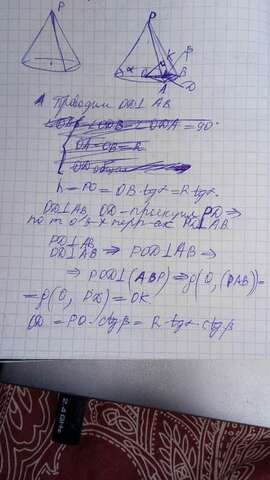 P
P
K
B
α
O
B
A
D
1 Проводим OD⊥AB
∠ODB = ∠ODA = 90°
OA=OB=R
OD общая
h = PO = OB·tgα = R·tgα.
OD⊥AB, OD – проекция PD ⇒
по т. о 3-х перп-ах PD⊥AB
PD⊥AB
OD⊥AB ⇒ POD⊥AB ⇒
⇒ POD⊥(ABP) ⇒ ρ(O,(PAB))=
=ρ(O, PD)=OK
OD = PO·ctgβ = R·tgα·ctgβ
2.4GHz